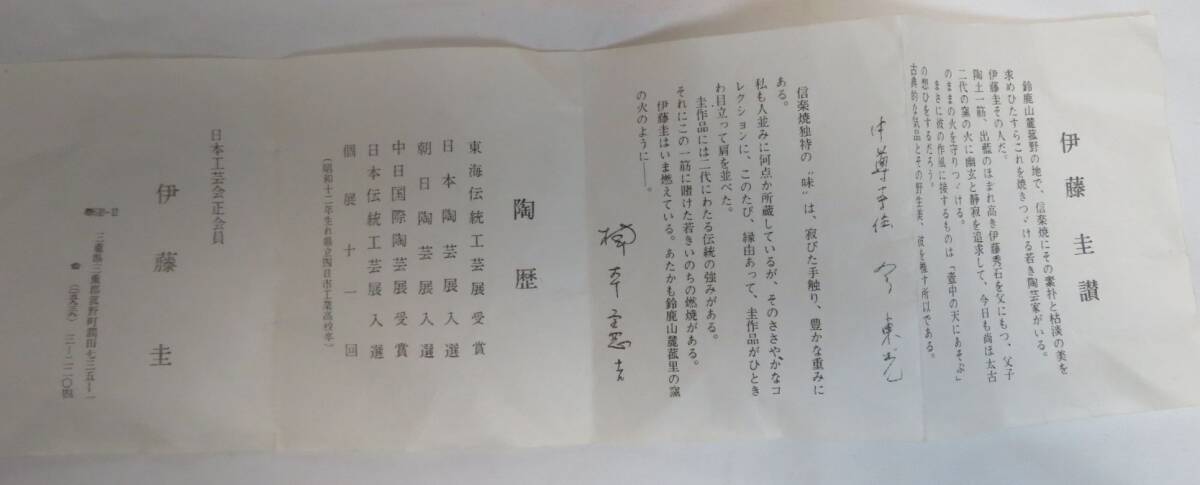 伊藤圭讃
鈴鹿山麓菰野の地で、信楽焼にその素朴と枯淡の美を
求めひたすらこれを焼きつゞける若き陶芸家がいる。
伊藤圭その人だ。
陶土一筋、出藍のほまれ高き伊藤秀石を父にもつ、父子
二代の窯の火に幽玄と静寂を追求して、今日も尚ほ太古
のままの火を守りつゞける。
まさに彼の作風に接するものは「壷中の天にあそぶ」
の想ひをするだろう。
古典的な気品とその野生美、彼を推す所以である。
信楽焼独特の〝味〟は、寂びた手触り、豊かな重みに
ある。
私も人並みに何点か所蔵しているが、そのささやかなコ
レクションに、このたび、縁由あって、圭作品がひとき
わ目立って肩を並べた。
圭作品には二代にわたる伝統の強みがある。
それにこの一筋に賭けた若きいのちの燃焼がある。
伊藤圭はいま燃えている。あたかも鈴鹿山麓菰里の窯
の火のように――。
陶歴
東海伝統工芸展受賞
日本陶芸展入選
朝日陶芸展入選
中日国際陶芸展受賞
日本伝統工芸展入選
個展十一回
(昭和十二年生れ県立四日市工業高校卒)
日本工芸会正会員
伊藤圭
三重県三重郡菰野町潤田七三五―一